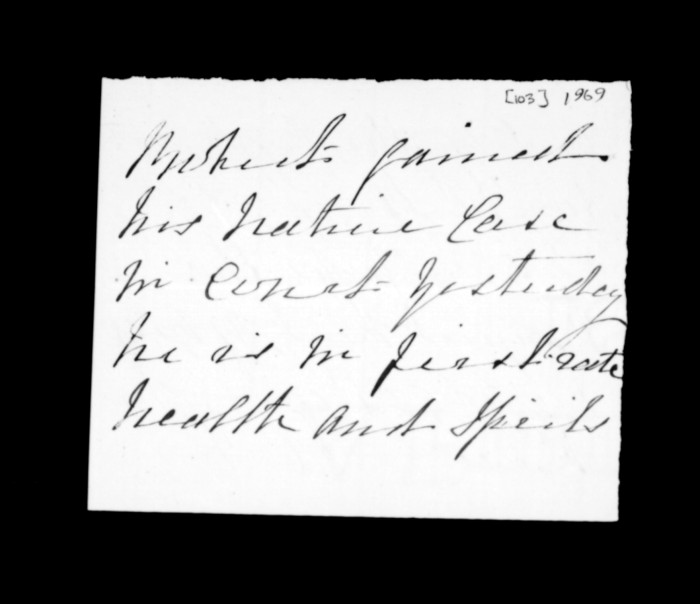 [103] 1969
gained
his native Case
in Court yesterday
he is in first rate
health and Spirits